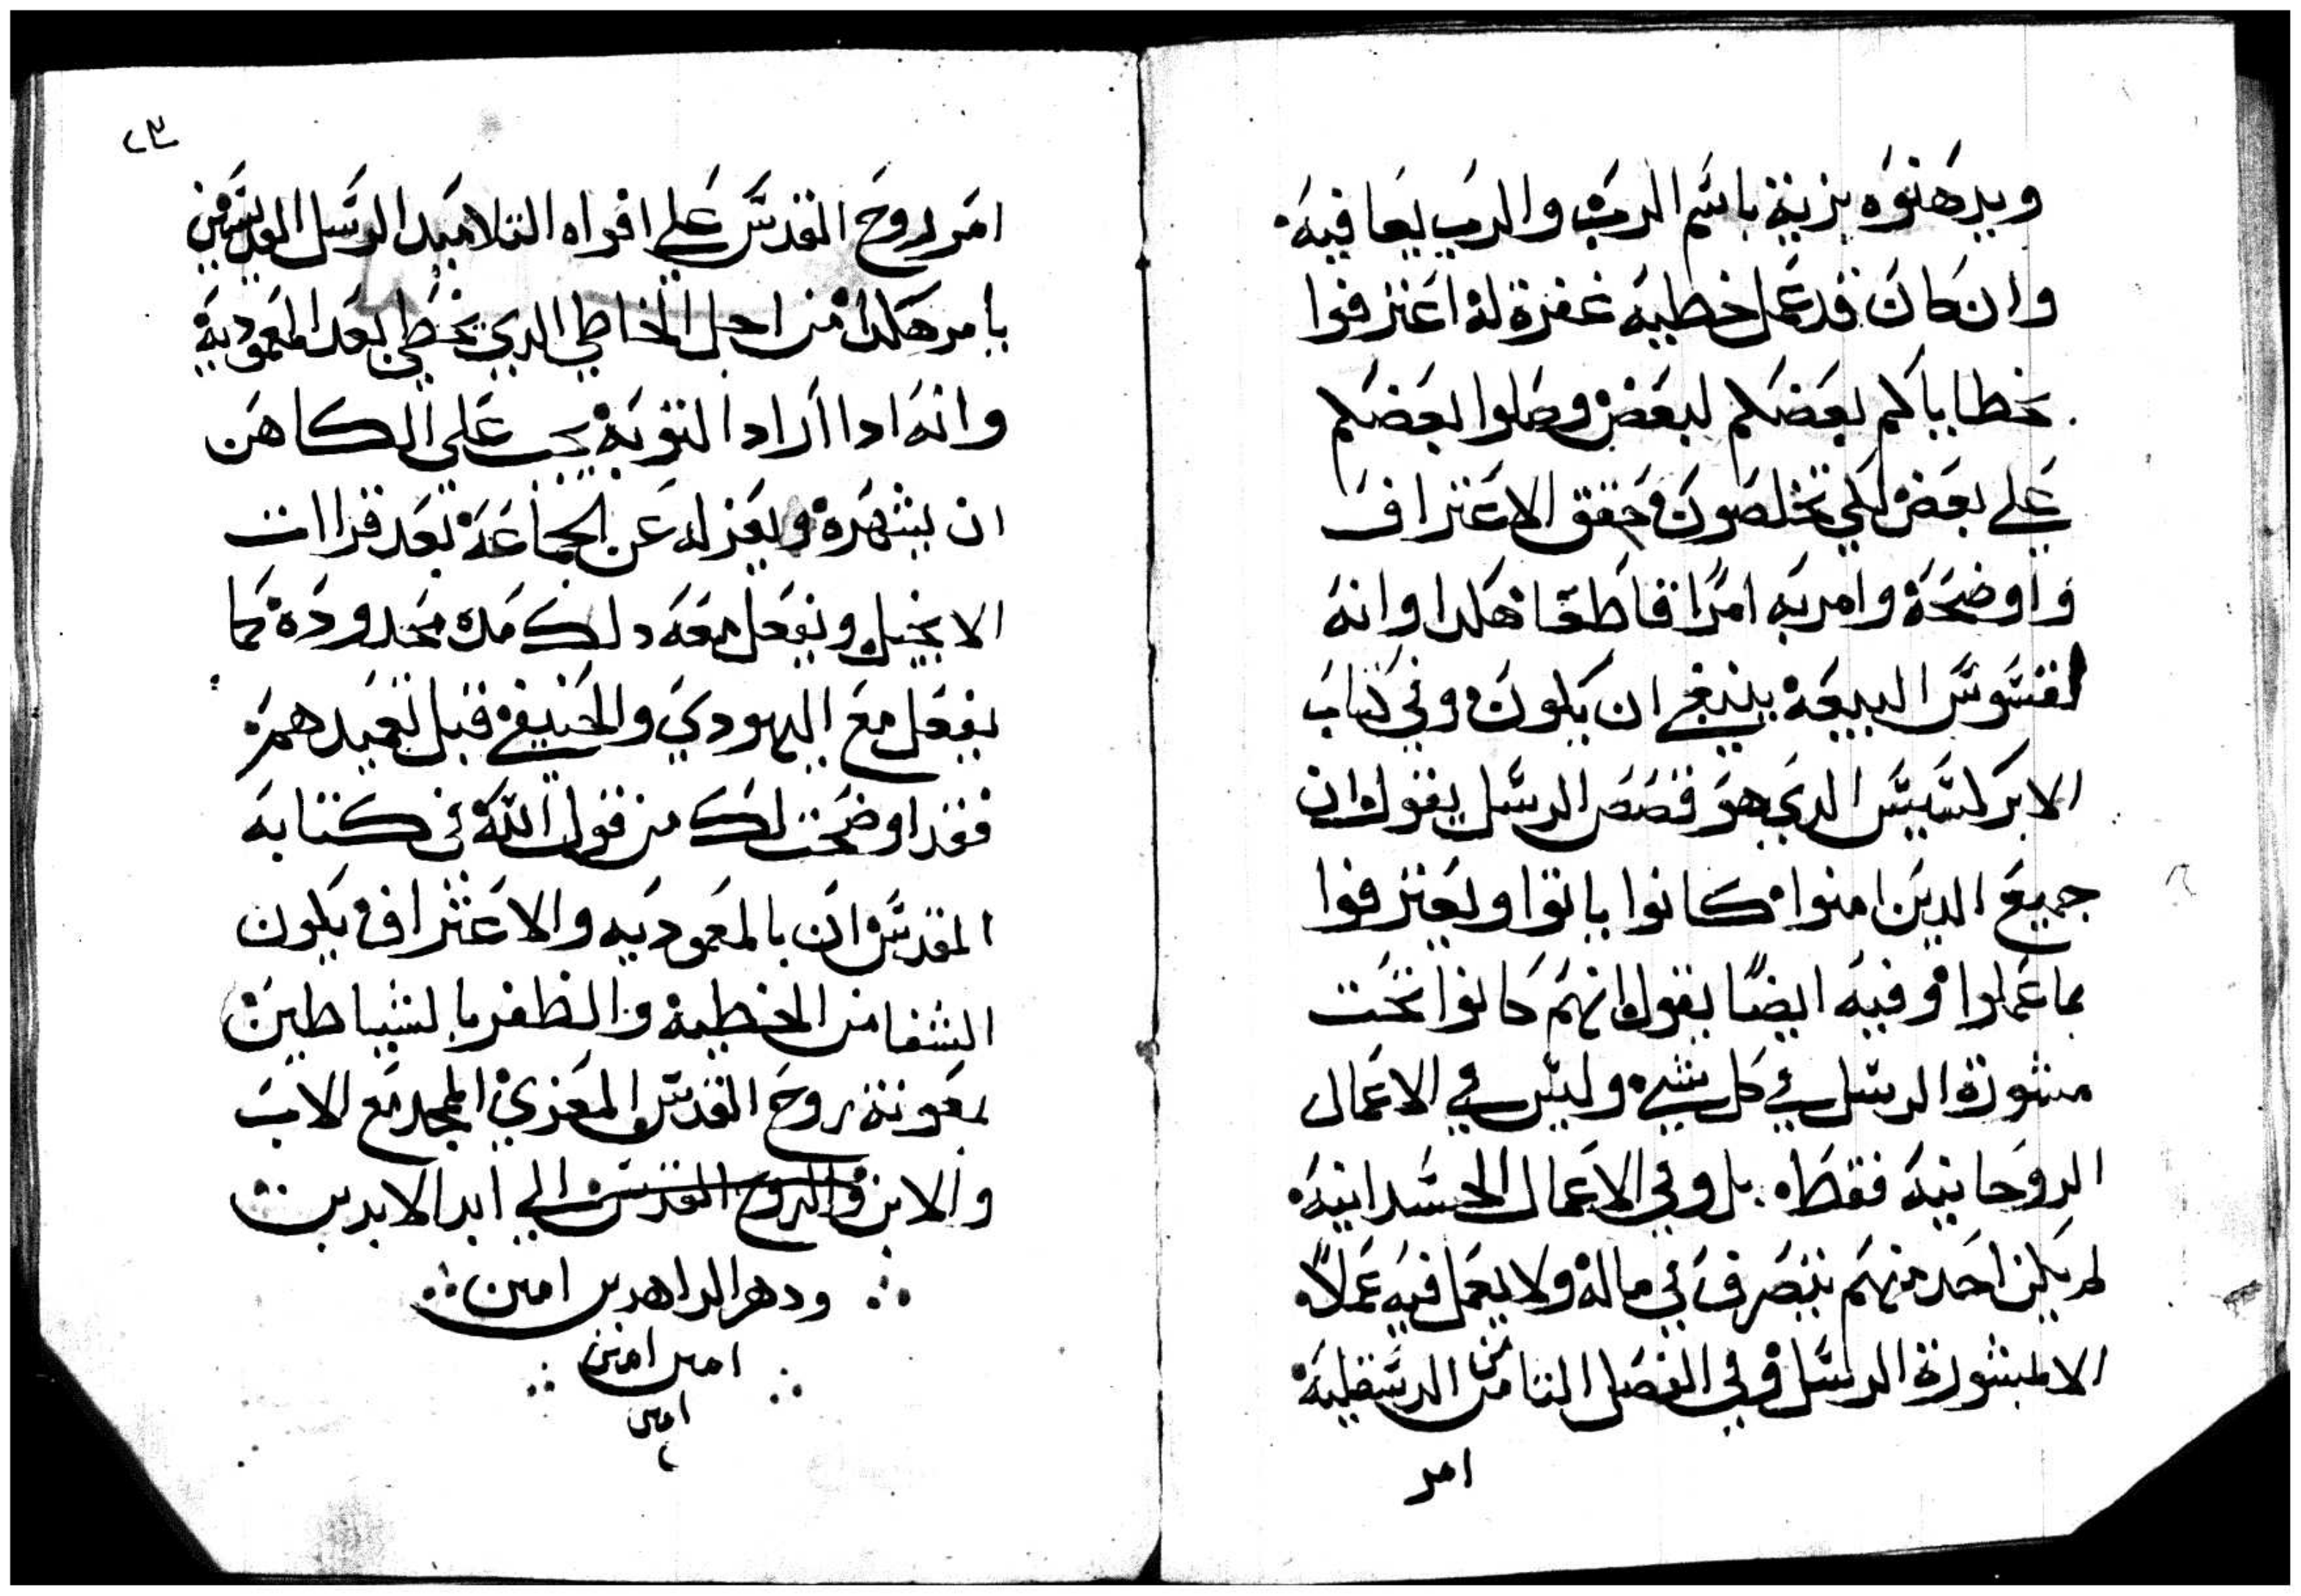 ويدهنوه بزيت باسم الرب والرب يعافيه
وان كان قد عمل خطيه غفرة له اعترفوا
بخطاياكم بعضكم لبعض وصلوا بعضكم
علي بعض لكي تخلصون فحقق الاعتراف
واوضحة وامر به امرًا قاطعًا هكدا وانه
لقسوس البيعة ينبغي ان يكون وفي كتاب
الابركسيس الدي هو قصص الرسل يقول ان
جميع الدين امنوا كانوا ياتوا ويعترفوا
بما عملوا وفيه ايضًا يقول انهم كانوا تحت
مشورة الرسل في كل شي وليس في الاعمال
الروحانيه فقط بل وفي الاعمال الجسدانيه
لم يكن احد منهم يتصرف في ماله ولا يعمل فيه عملاً
الا بمشورة الرسل وفي الفصل الثامن من الدسقليه
امر
٢٣
امر روح القدس علي افواه التلاميد الرسل القديسين
يامر هكدا من اجل الخاطي الدي يخطي بعد المعمودية
وانه ادا اراد التوبة يجب علي الكاهن
ان يشهرة ويعزله عن الجماعة بعد قراات
الانجيل ويفعل معه دلك مده محدودة كما
يفعل مع اليهودي والحنيفي قبل تعميدهم
فقد اوضحت لك من قول الله في كتابه
المقدس ان بالمعموديه والاعتراف يكون
الشفا من الخطية والظفر بالشياطين
بمعونة روح القدس المعزي الممجد مع الاب
والابن والروح القدس الي ابد الابدين
ودهر الداهرين امين
امين امين
امين